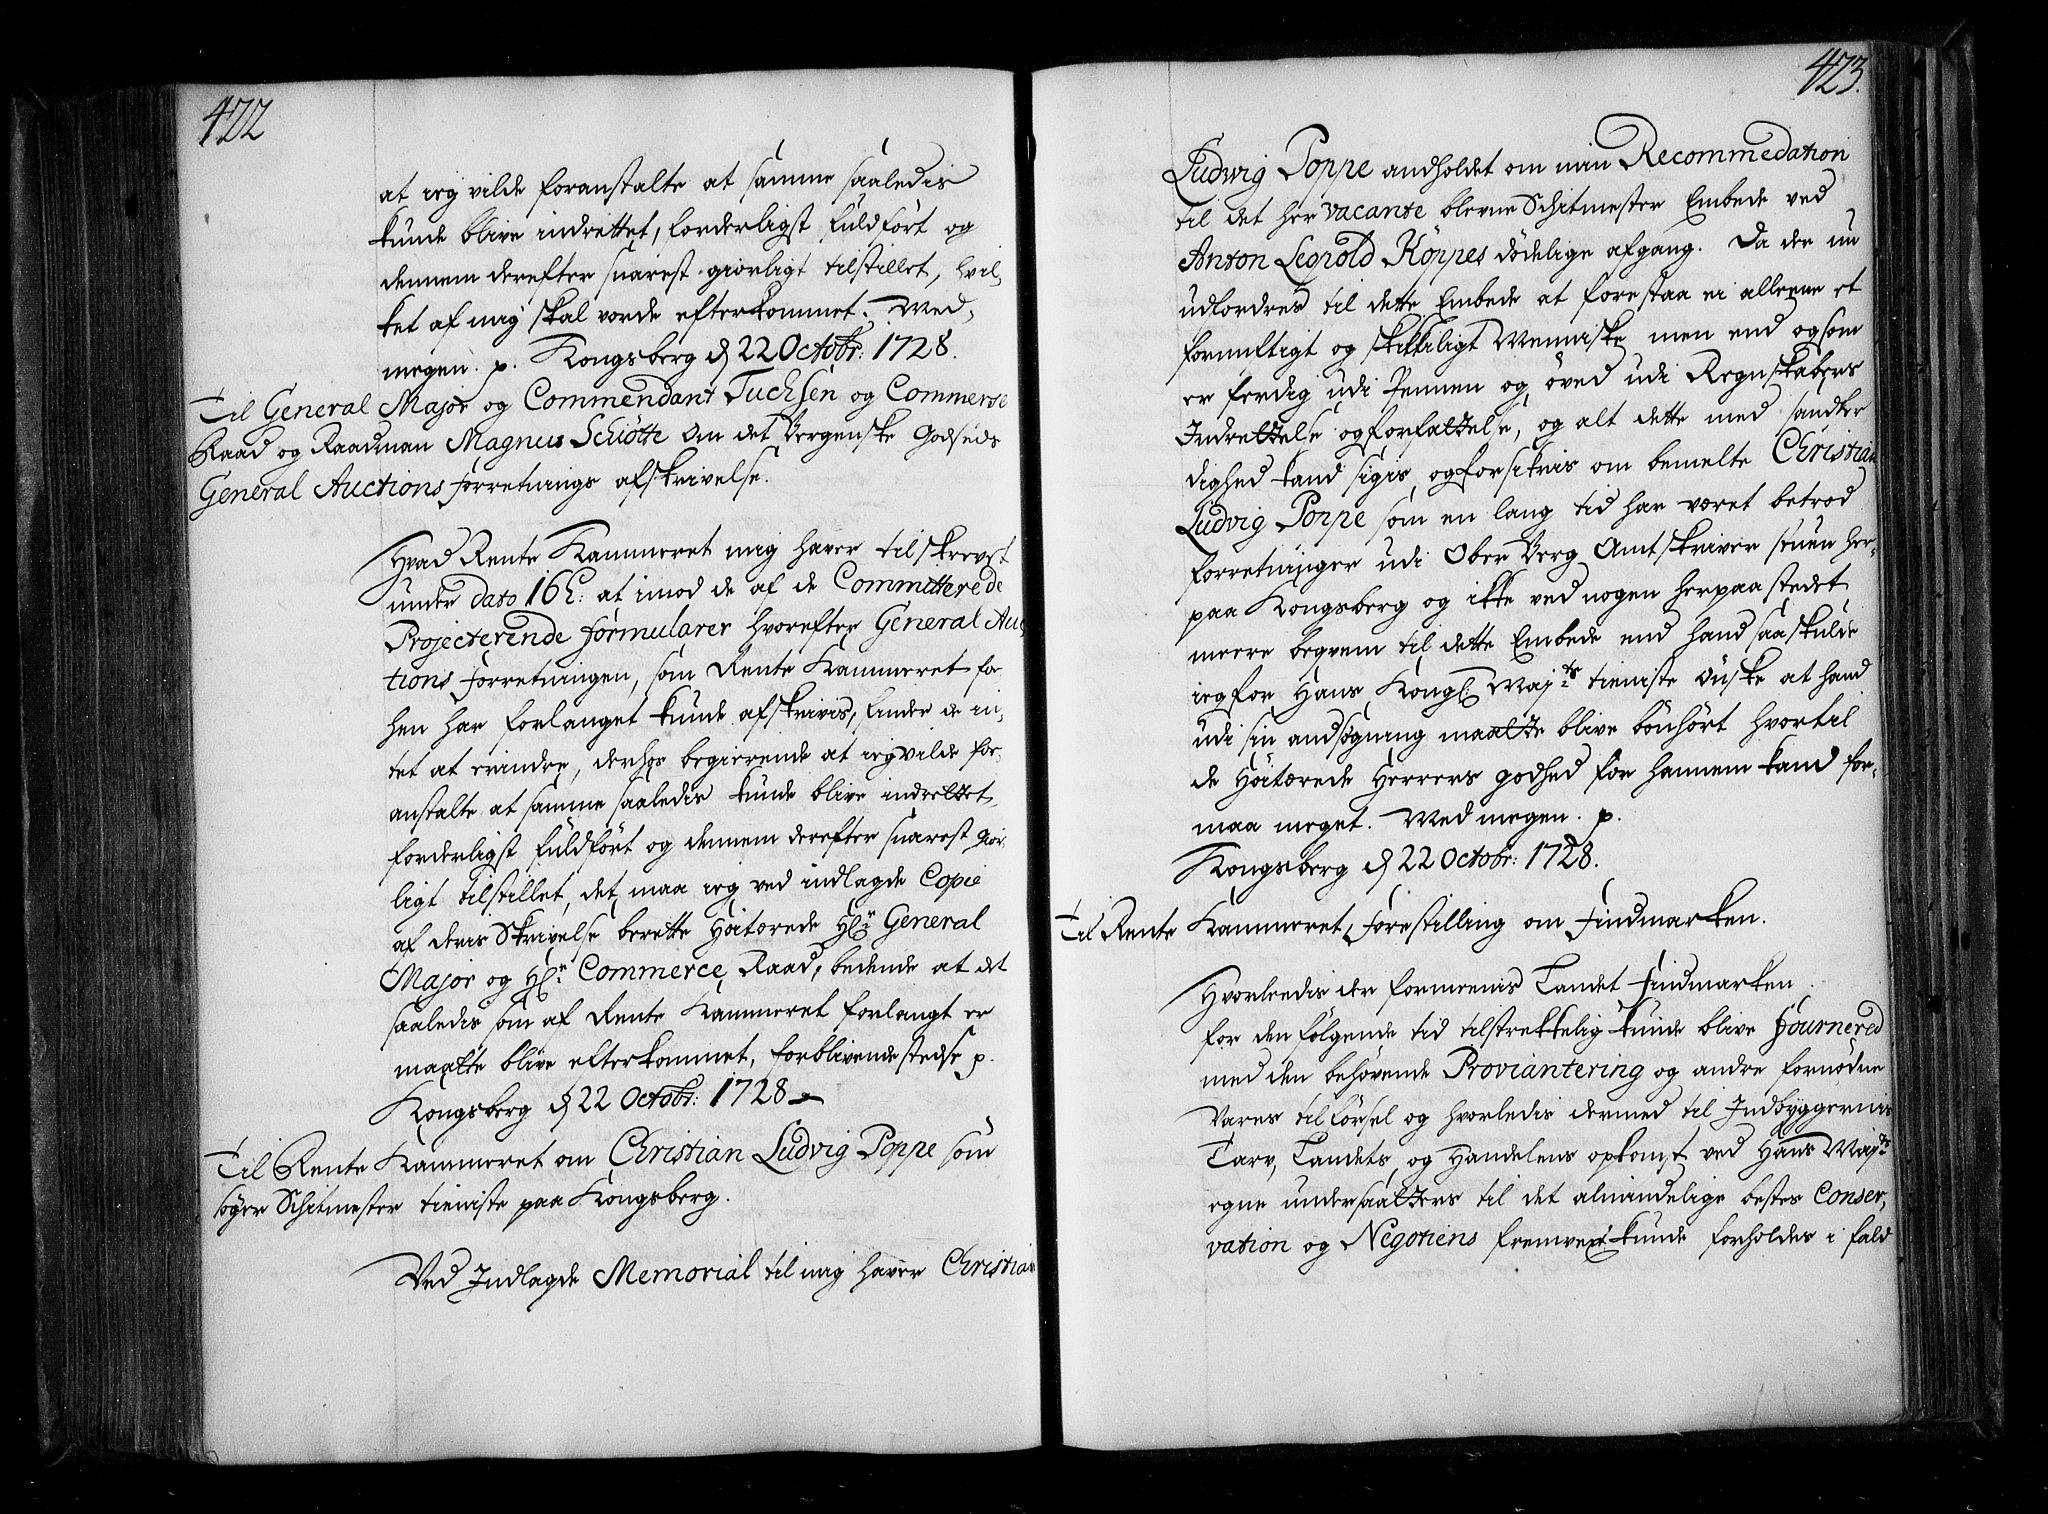 422
at ieg vilde foranstalte at samme saaledis
kunde blive indrettet, forderligst fuldført og
dennem derefter snarest giørligt tilstillet, hvil-
ket af mig skal vorde efterkommet. Med-
megen. p. Kongsberg d 22 Octobr: 1728.
Til General Major og Commendant Tuchsen og Commerse
Raad og Raadman Magnus Schiötte om det Bergenske Godseds
General Auctions forretnings afskrivelse.
Hvad Rente Kammeret mig haver tilskrevet
under dato 16 h: at imod de af de Committerede
Projecterende formularer hvorefter General Auc-
tions forretningen, som Rente Kammeret for
hen har forlanget kunde afskrivis, finder de in-
tet at erindre, derhos begierende at ieg vilde for-
anstalte at samme saaledis kunde blive indrettet,
forderligst fuldført og dennem derefter snarest giør-
ligt tilstillet, det maa ieg ved indlagde Copie
af deris Skrivelse berette Høitærede Hr General
Major og Hr Commerce Raad, bedende at det
saaledis som af Rente Kammeret forlangt er
maatte blive efterkommet, forblivende stedse p.
Kongsberg d 22 Octobr: 1728
Til Rente Kammeret om Christian Ludvig Poppe som
søger Schitmester tieniste paa Kongsberg.
Ved Indlagde Memorial til mig haver Christian
423.
Ludwig Poppe andholdet om min Recommedation
til det her vacante blevne Schitmester Embede ved
Anton Legpold Köppes dödelige afgang. Da der nu
udfordres til dette Embede at forestaa ei alleene et
fornuftigt og skikkiligt Menniske men end ogsom
er ferdig udi Pennen og øved udi Regnskabers
Indrettelse og forfattelse, og alt dette med sandfer
dighed kand sigis, og forsikris om bemelte Christian
Ludvig Poppe som en lang tid har været betrod
forretninger udi Ober Berg Amtskriver stuen her-
paa Kongsberg og ikke ved nogen herpaa stedet
meere beqvem til dette Embede end hand saa skulde
ieg for Hans Kongl: Majts tieniste ønske at hand
udi sin andsøgning maatte blive bönhört hvortil
de Høitærede Herrers godhed for hannem kand for-
maa meget. Med megen. p.
Kongsberg d 22 Octobr: 1728.
Til Rente Kammeret, forestilling om Findmarken.
Hvorleedis der formeenis Landet Findmarken
for den følgende tid tilstrekkelig kunde blive fournered
med den behøvende Proviantering og andre fornødne
Vares tilførsel og hvorledis dermed til Indbyggernis
Tarv, Landets og Handelens opkomst ved Hans Majts
egne undersaatters til det almindelige bestes Conser-
vation og Negotiens fremvext kunde forholdes i fald